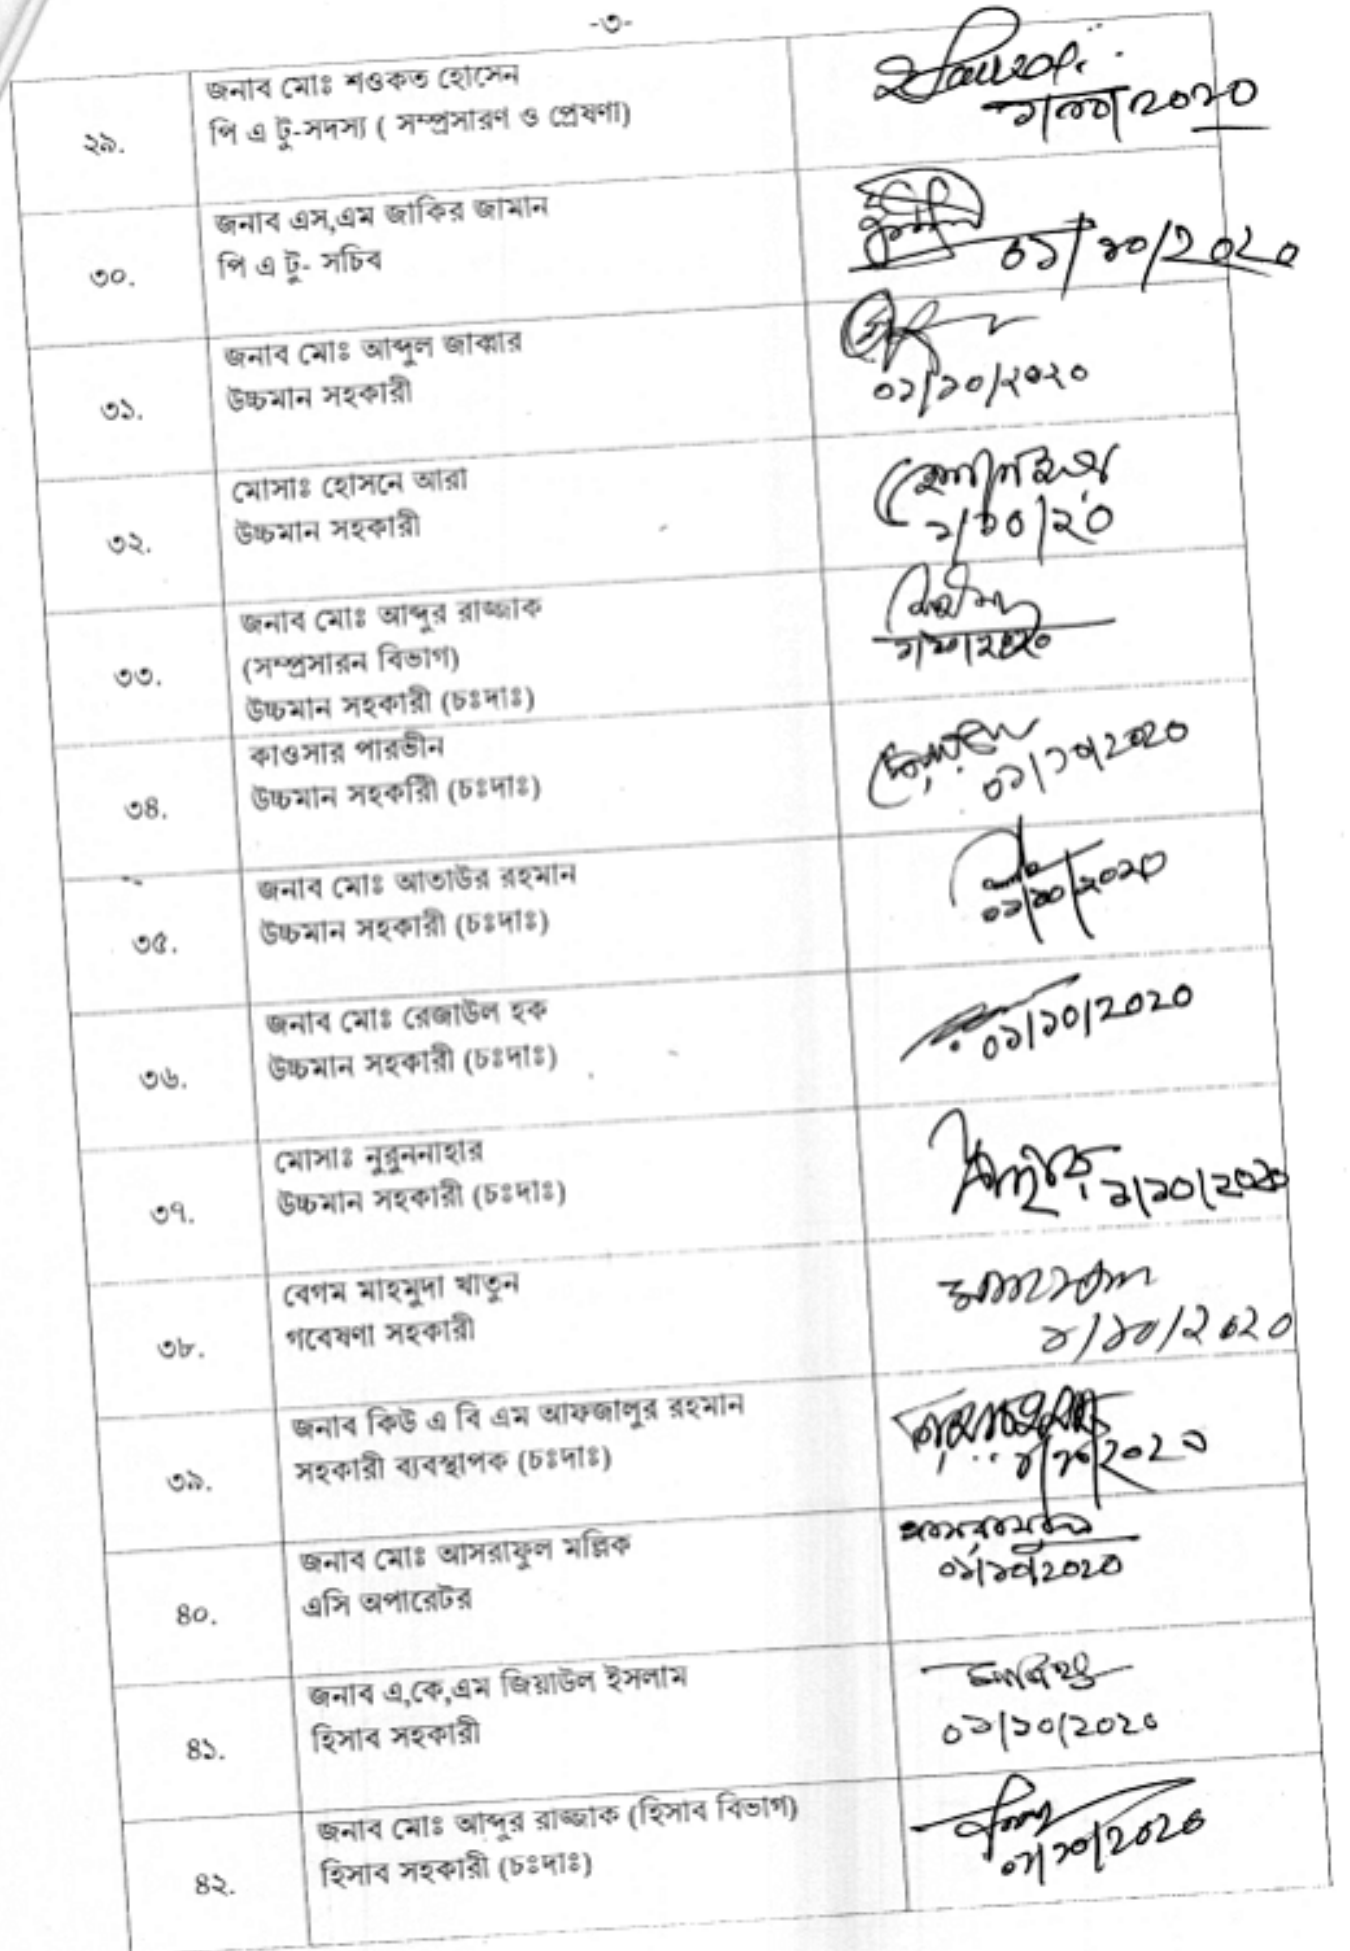 -৩-
২৯.
জনাব মোঃ শওকত হোসেন
পি এ টু-সদস্য ( সম্প্রসারণ ও প্রেষণা)
৩০.
জনাব এস,এম জাকির জামান
পি এ টু- সচিব
০১/১০/২০২০
৩১.
জনাব মোঃ আব্দুল জাব্বার
উচ্চমান সহকারী
০১/১০/২০২০
৩২.
মোসাঃ হোসনে আরা
উচ্চমান সহকারী
১/১০/২০
৩৩.
জনাব মোঃ আব্দুর রাজ্জাক
(সম্প্রসারন বিভাগ)
উচ্চমান সহকারী (চঃদাঃ)
১/১০/২০২০
৩৪.
কাওসার পারভীন
উচ্চমান সহকারী (চঃদাঃ)
০১/১০/২০২০
৩৫.
জনাব মোঃ আতাউর রহমান
উচ্চমান সহকারী (চঃদাঃ)
০১/১০/২০২০
৩৬.
জনাব মোঃ রেজাউল হক
উচ্চমান সহকারী (চঃদাঃ)
০১/১০/২০২০
৩৭.
মোসাঃ নুরুননাহার
উচ্চমান সহকারী (চঃদাঃ)
১/১০/২০২০
৩৮.
বেগম মাহমুদা খাতুন
গবেষণা সহকারী
১/১০/২০২০
৩৯.
জনাব কিউ এ বি এম আফজালুর রহমান
সহকারী ব্যবস্থাপক (চঃদাঃ)
১/১০/২০২০
৪০.
জনাব মোঃ আসরাফুল মল্লিক
এসি অপারেটর
০১/১০/২০২০
৪১.
জনাব এ,কে,এম জিয়াউল ইসলাম
হিসাব সহকারী
০১/১০/২০২০
৪২.
জনাব মোঃ আব্দুর রাজ্জাক (হিসাব বিভাগ)
হিসাব সহকারী (চঃদাঃ)
০১/১০/২০২০